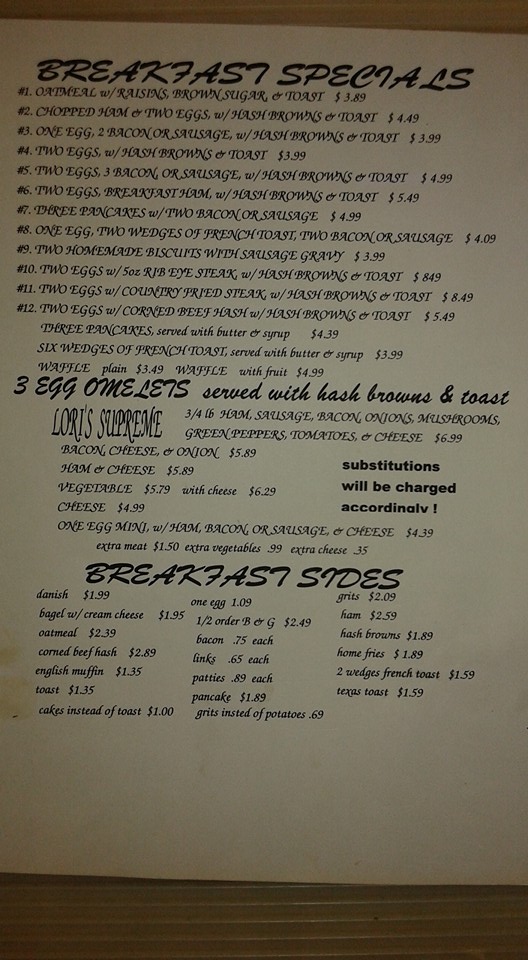 BREAKFAST SPECIALS
#1. OATMEAL w/ RAISINS, BROWN SUGAR, & TOAST $ 3.89
#2. CHOPPED HAM & TWO EGGS, w/ HASH BROWNS & TOAST $ 4.49
#3. ONE EGG, 2 BACON OR SAUSAGE, w/ HASH BROWNS & TOAST $ 3.99
#4. TWO EGGS, w/ HASH BROWNS & TOAST $3.99
#5. TWO EGGS, 3 BACON, OR SAUSAGE, w/ HASH BROWNS & TOAST $ 4.99
#6. TWO EGGS, BREAKFAST HAM, w/ HASH BROWNS & TOAST $ 5.49
#7. THREE PANCAKES w/ TWO BACON OR SAUSAGE $ 4.99
#8. ONE EGG, TWO WEDGES OF FRENCH TOAST, TWO BACON OR SAUSAGE $ 4.09
#9. TWO HOMEMADE BISCUITS WITH SAUSAGE GRAVY $ 3.99
#10. TWO EGGS w/ 5oz RIB EYE STEAK, w/ HASH BROWNS & TOAST $ 849
#11. TWO EGGS w/ COUNTRY FRIED STEAK, w/ HASH BROWNS & TOAST $ 8.49
#12. TWO EGGS w/ CORNED BEEF HASH w/ HASH BROWNS & TOAST $ 5.49
THREE PANCAKES, served with butter & syrup $4.39
SIX WEDGES OF FRENCH TOAST, served with butter & syrup $3.99
WAFFLE plain $3.49 WAFFLE with fruit $4.99
3 EGG OMELETS served with hash browns & toast
LORI'S SUPREME 3/4 lb HAM, SAUSAGE, BACON, ONIONS, MUSHROOMS,
GREEN PEPPERS, TOMATOES, & CHEESE $6.99
BACON, CHEESE, & ONION $5.89
HAM & CHEESE $5.89
VEGETABLE $5.79 with cheese $6.29
CHEESE $4.99
substitutions
will be charged
accordingly !
ONE EGG MINI, w/ HAM, BACON, OR SAUSAGE, & CHEESE $4.39
extra meat $1.50 extra vegetables .99 extra cheese .35
BREAKFAST SIDES
danish $1.99
bagel w/ cream cheese $1.95
oatmeal $2.39
corned beef hash $2.89
english muffin $1.35
toast $1.35
cakes instead of toast $1.00
one egg 1.09
1/2 order B & G $2.49
bacon .75 each
links .65 each
patties .89 each
pancake $1.89
grits insted of potatoes .69
grits $2.09
ham $2.59
hash browns $1.89
home fries $ 1.89
2 wedges french toast $1.59
texas toast $1.59